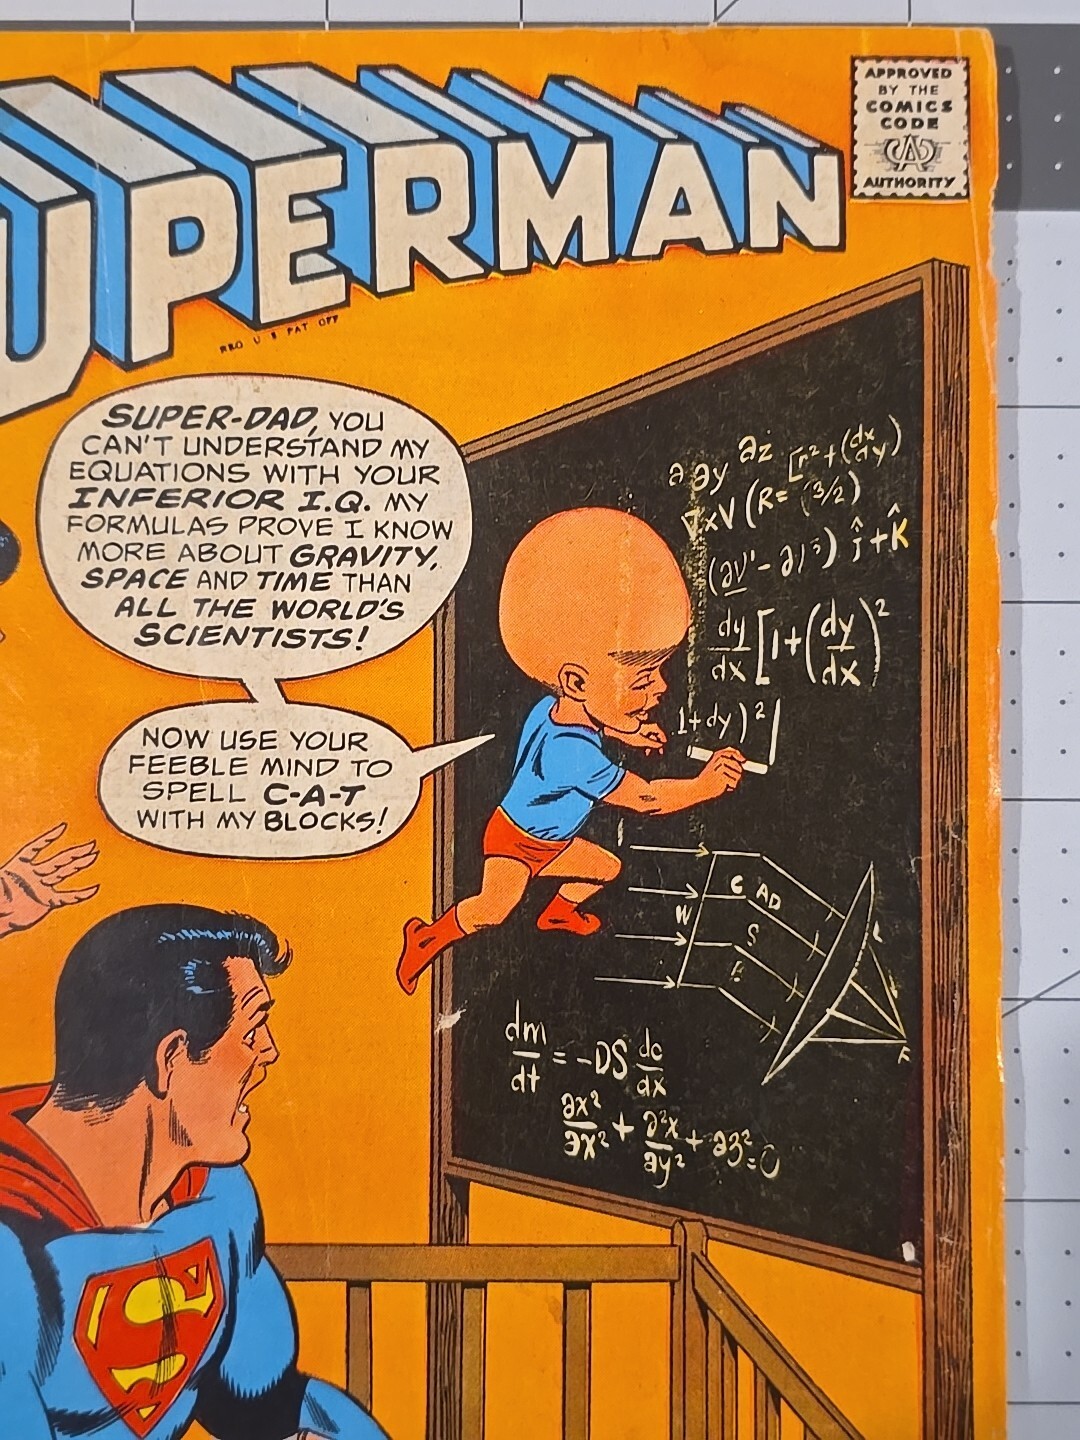 UPERMAN
REG U S PAT OFF
APPROVED
BY THE
COMICS
CODE
AUTHORITY
SUPER-DAD, YOU
CAN'T UNDERSTAND MY
EQUATIONS WITH YOUR
INFERIOR I.Q. MY
FORMULAS PROVE I KNOW
MORE ABOUT GRAVITY,
SPACE AND TIME THAN
ALL THE WORLD'S
SCIENTISTS!
NOW USE YOUR
FEEBLE MIND TO
SPELL C-A-T
WITH MY BLOCKS!
∂ ∂y ∂z [r²+(dx/dy)
∇xV (R= (3/2)
ĵ+K̂
dy/dx [1+(dy/dx)²
1+dy)²]
C AD
W
S
E
F
dm/dt = -DS dc/dx
∂x²/∂x² + ∂²x/∂y² + ∂3²=0
S